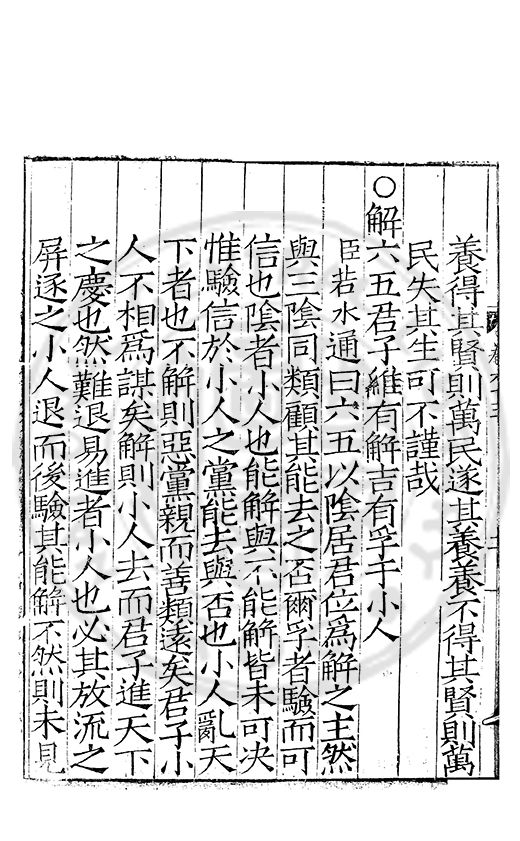 養得其賢則萬民遂其養養不得其賢則萬
民失其生可不謹哉
○解六五君子維有解吉有孚于小人
臣若水通曰六五以陰居君位爲解之主然
與三陰同類顧其能去之否爾孚者驗而可
信也陰者小人也能解與不能解皆未可决
惟驗信於小人之黨能去與否也小人亂天
下者也不解則惡黨親而善類遠矣君子小
人不相爲謀矣解則小人去而君子進天下
之慶也然難退易進者小人也必其放流之
屏逐之小人退而後驗其能解不然則未見